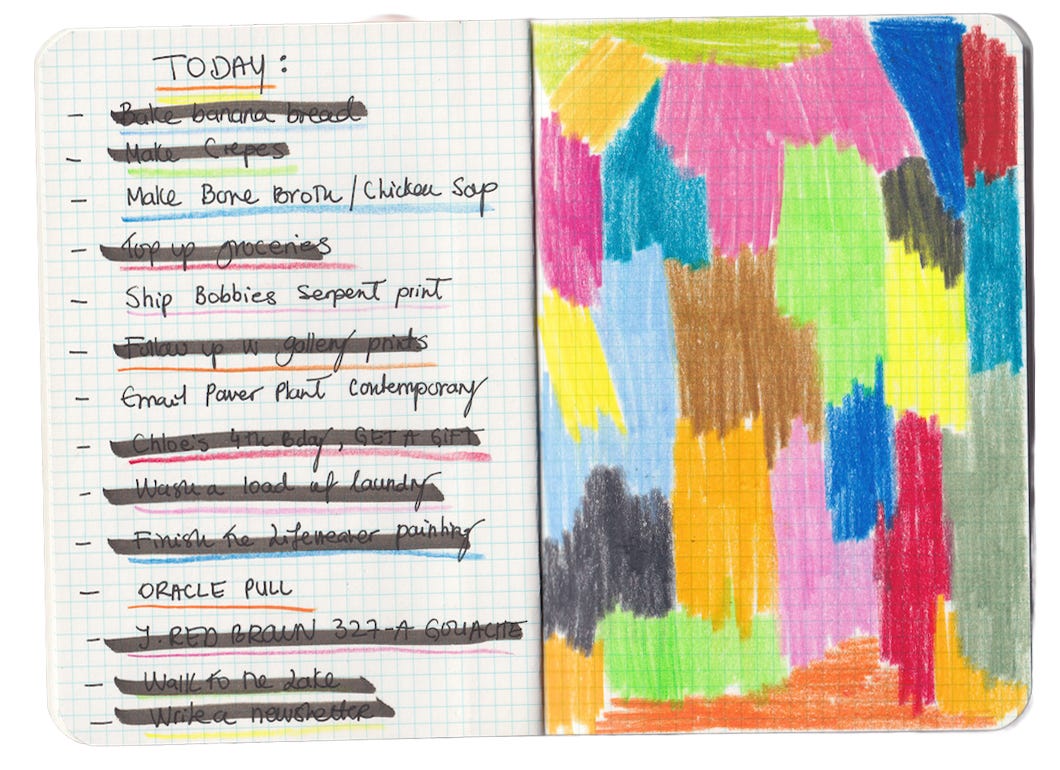 TODAY:
- Bake banana bread
- Make Crepes
- Make Bone Broth / Chicken Soup
- Top up groceries
- Ship Bobbies Serpent print
- Follow up w gallery prints
- Email Power Plant Contemporary
- Chloe's 4th Bday, GET A GIFT
- Wash a load of laundry
- Finish the Lifeweaver painting
- ORACLE PULL
- Y. RED BROWN 327-A GOUACHE
- Walk to the Lake
- Write a newsletter